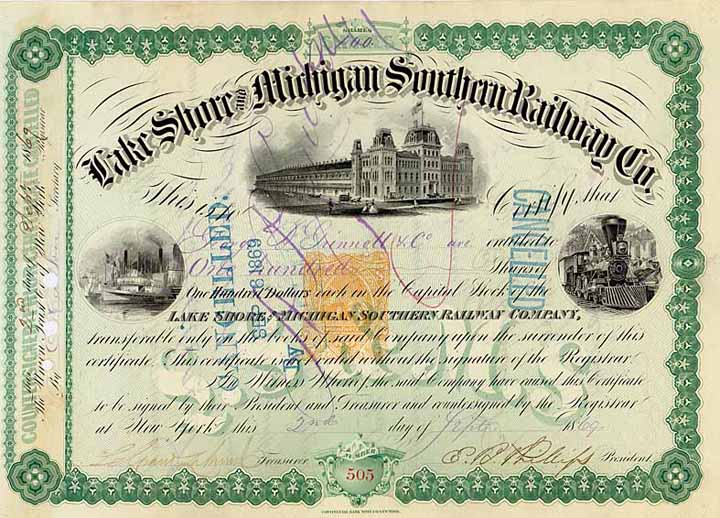 SHARES
100
Lake Shore and Michigan Southern Railway Co.
This is to Certify that
George B. Grinnell & Co are entitled to
One Hundred Shares of
One Hundred Dollars each in the Capital Stock of the
LAKE SHORE and MICHIGAN SOUTHERN RAILWAY COMPANY,
transferable only on the books of said Company upon the surrender of this
certificate. This certificate is not valid without the signature of the Registrar.
In Witness Whereof, the said Company have caused this Certificate
to be signed by their President and Treasurer and countersigned by the Registrar
at New York this 2nd day of Sept 1869
Treasurer.
E. B. Phillips President.
NUMBER
505
CANCELLED
CANCELLED.
SEP 6 1869
By
COUNTERSIGNED
2nd day of Sept 1869
The Union Trust Co. of New York
By Secretary
CONTINENTAL BANK NOTE CO NEW YORK.